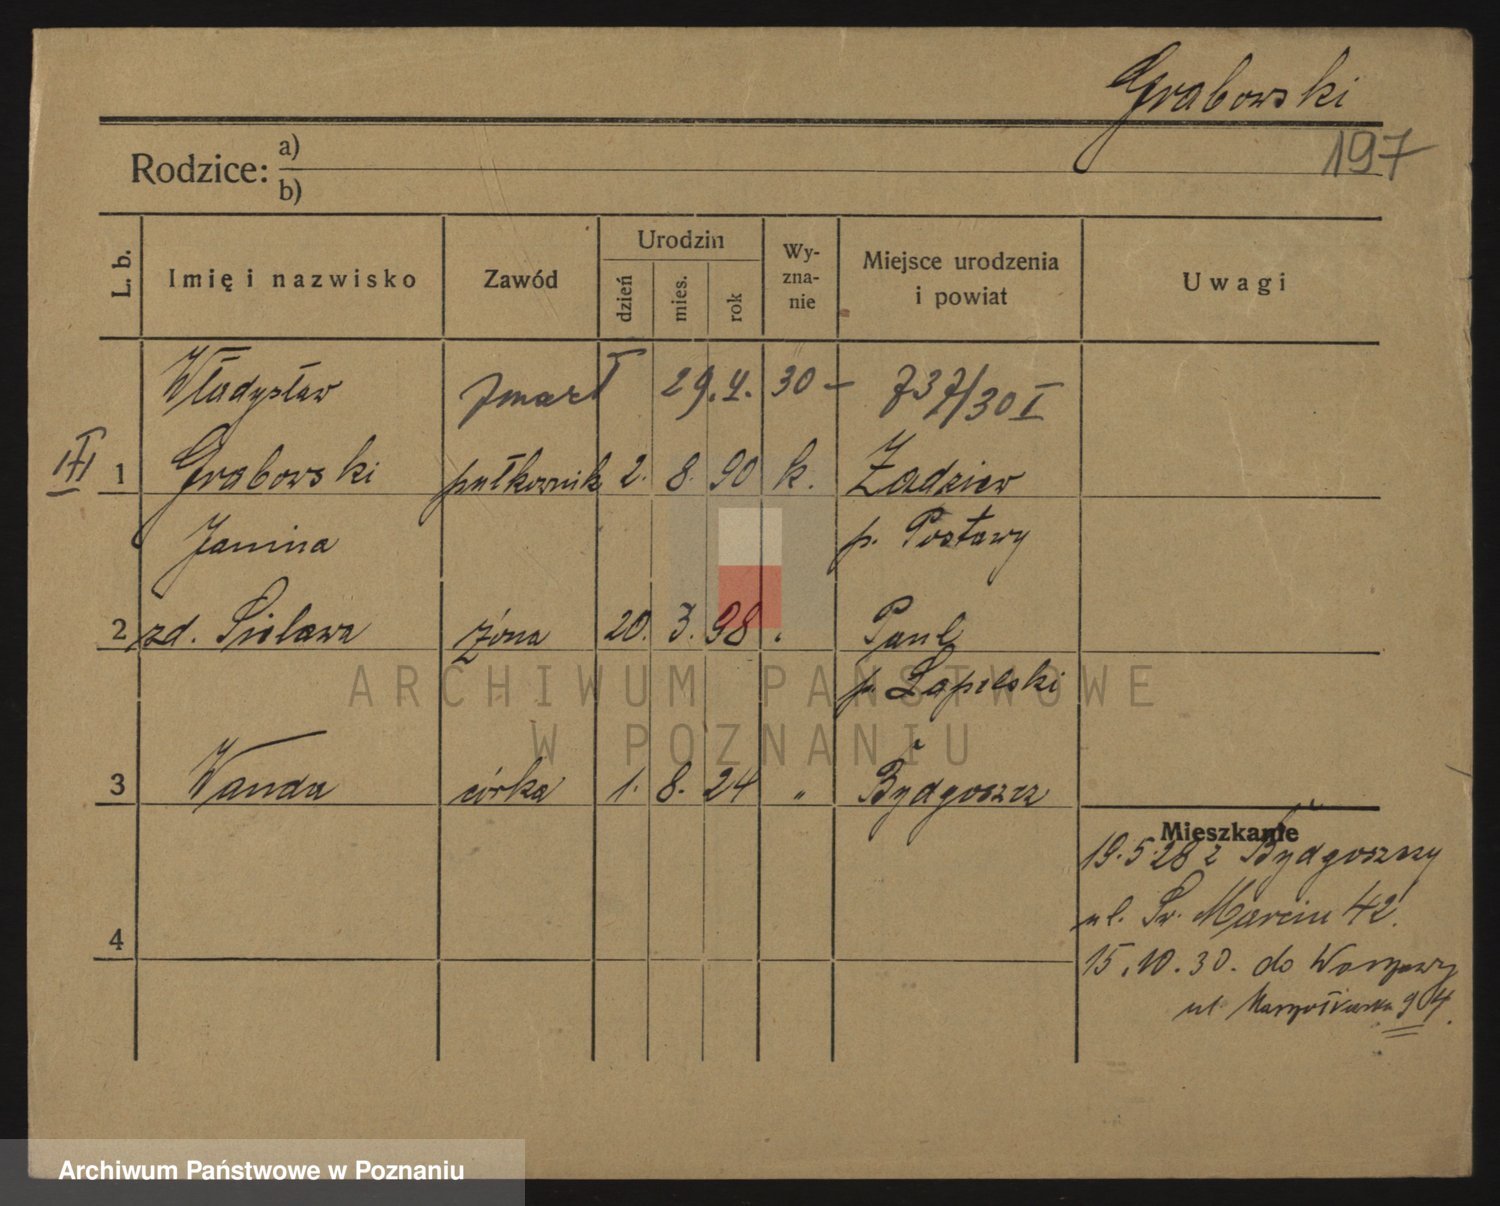 Grabowski
197
Rodzice: a)
b)
L. b.
Imię i nazwisko
Zawód
Urodzin
dzień
mies.
rok
Wy-
zna-
nie
Miejsce urodzenia
i powiat
Uwagi
Władysław zmarł 29.4.30 – 737/30 I
III 1 Grabowski pułkownik 2. 8. 90 k. Żadziew
Janina p. Postawy
2 zd. Sielawa żona 20. 3. 98 „
p.
ARCHIWUM PAŃSTWOWE
W POZNANIU
3 Wanda córka 1. 8. 24 „ Bydgoszcz
Mieszkanie
19.5.28 z Bydgoszczy
ul. Św. Marcin 42.
4
15.10.30. do Warszawy
ul. Marszałkowska 94.
Archiwum Państwowe w Poznaniu